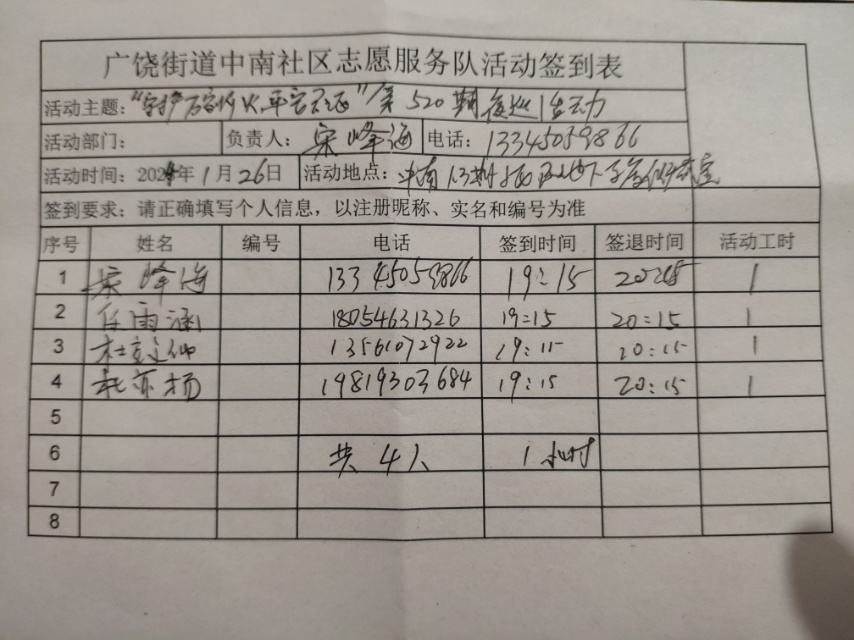 广饶街道中南社区志愿服务队活动签到表
活动主题：“守护万家灯火，平安不ro”第520期夜巡活动
活动部门： 负责人：宋峰海 电话：13345059866
活动时间：2024年1月26日 活动地点：中南1.3期
签到要求：请正确填写个人信息，以注册昵称、实名和编号为准
序号 姓名 编号 电话 签到时间 签退时间 活动工时
1 宋峰海 13345059866 19:15 20:15 1
2 任雨涵 18054631326 19:15 20:15 1
3 杜 仙 13561072922 19:15 20:15 1
4 杜亦杨 19819303684 19:15 20:15 1
5
6 共4人 1小时
7
8